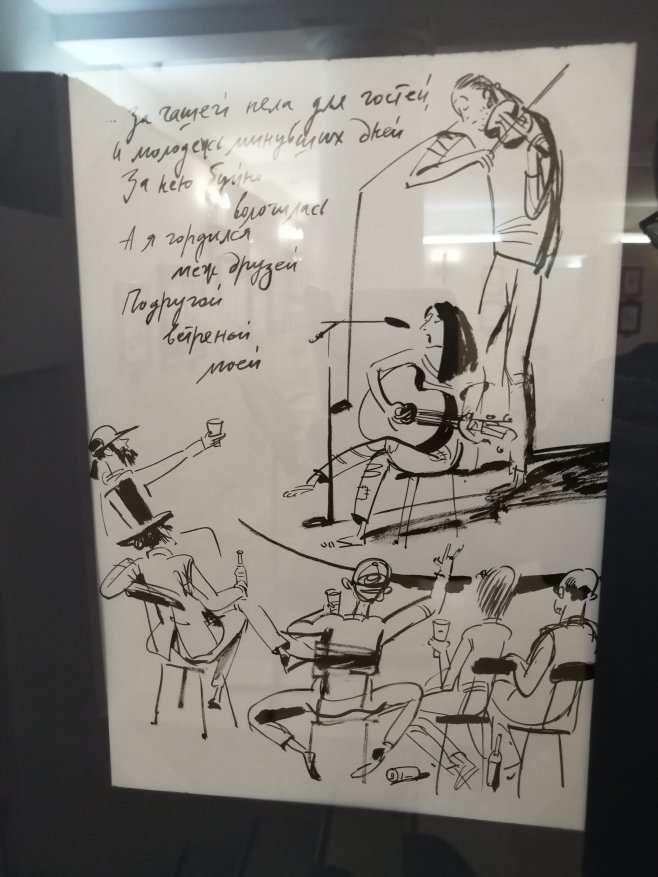 За чашей пела для гостей
И молодежь минувших дней
За нею буйно
волочилась
А я гордился
меж друзей
Подругой
ветреной
моей